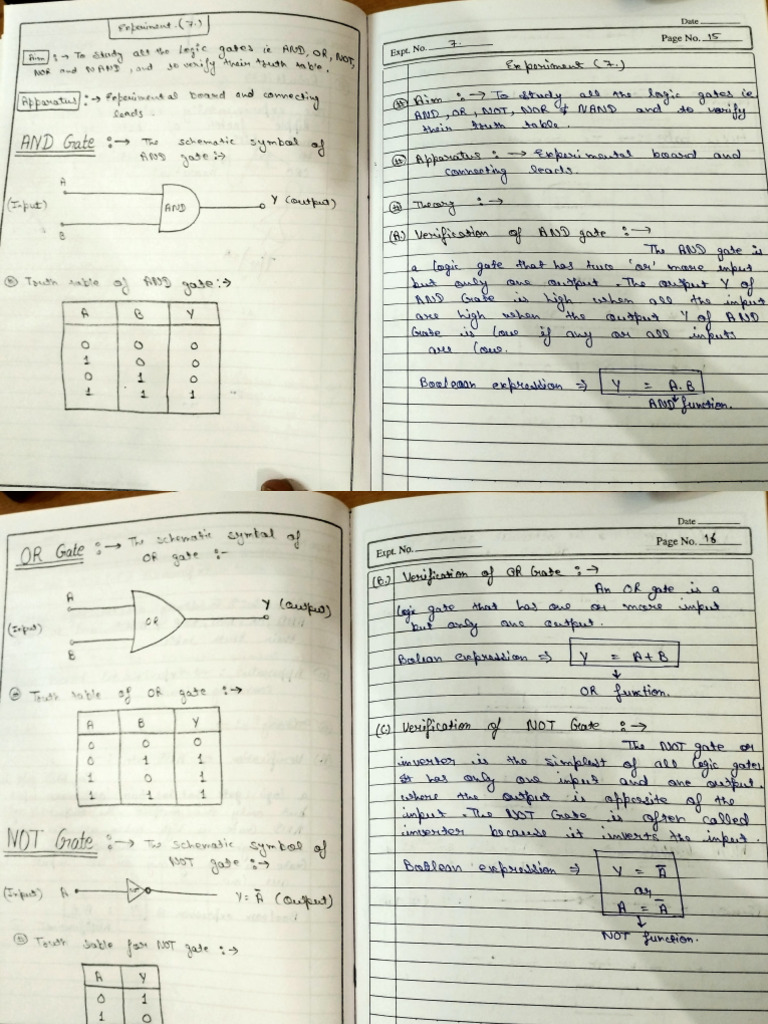 Experiment (7.)
Aim :→ To study all the logic gates ie AND, OR, NOT,
NOR and NAND, and to verify their truth table.
Apparatus :→ Experimental board and connecting
leads.
AND Gate :→ The schematic symbol of
AND gate :→
A
(Input)
AND
Y (output)
B
Truth table of AND gate :→
A B Y
0 0 0
1 0 0
0 1 0
1 1 1
Date
Expt. No. 7.
Page No. 15
Experiment (7.)
Aim :→ To study all the logic gates ie
AND, OR, NOT, NOR & NAND and to verify
their truth table.
Apparatus :→ Experimental board and
connecting leads.
Theory :→
(A.) Verification of AND gate :→
The AND gate is
a logic gate that has two 'or' more input
but only one output. The output Y of
AND Gate is high when all the input
are high when the output Y of AND
Gate is low if any or all inputs
are low.
Boolean expression ⇒ Y = A.B
AND function.
OR Gate :→ The schematic symbol of
OR gate :-
A
(Input)
OR
Y (output)
B
Truth table of OR gate :→
A B Y
0 0 0
0 1 1
1 0 1
1 1 1
NOT Gate :→ The schematic symbol of
NOT gate :→
(Input) A NOT Y = Ā (output)
Truth table for NOT gate :→
A Y
0 1
1 0
Date
Expt. No.
Page No. 16
(B.) Verification of OR Gate :→
An OR gate is a
logic gate that has one or more input
but only one output.
Bolean expression ⇒ Y = A+B
↓
OR function.
(C) Verification of NOT Gate :→
The NOT gate or
inverter is the simplest of all logic gates
it has only one input and one output.
where the output is opposite of the
input. The NOT Gate is often called
inverter because it inverts the input.
Boolean expression ⇒ Y = Ā
or
A = Ā
↓
NOT function.